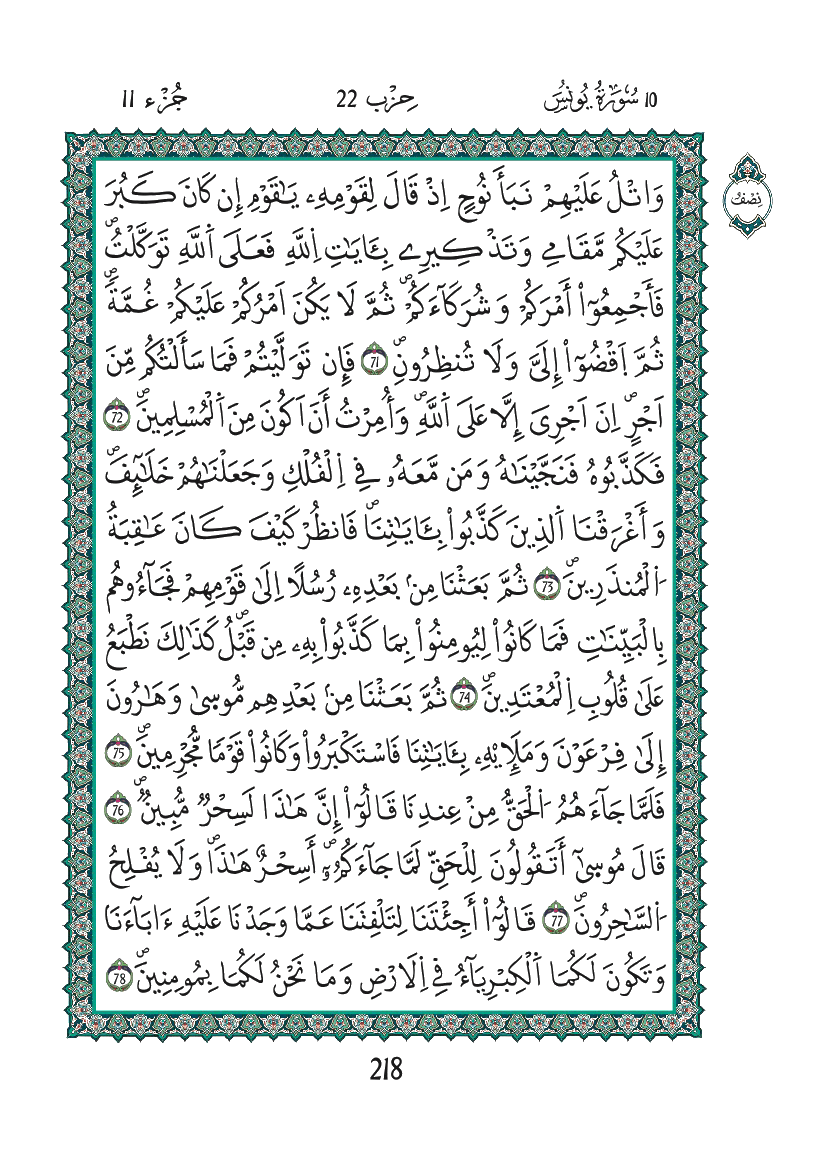 10 سُورَةُ يُونُسَ حِزْب 22 جُزْء 11
نِصْفُ
وَاتْلُ عَلَيْهِمْ نَبَأَ نُوحٍ اِذْ قَالَ لِقَوْمِهِۦ يَٰقَوْمِ إِن كَانَ كَبُرَ
عَلَيْكُم مَّقَامِے وَتَذْكِيرِے بِـَٔايَٰتِ اِ۬للَّهِ فَعَلَى اَ۬للَّهِ تَوَكَّلْتُۖ
فَأَجْمِعُوٓاْ أَمْرَكُمْ وَشُرَكَآءَكُمْۖ ثُمَّ لَا يَكُنَ اَمْرُكُمْ عَلَيْكُمْ غُمَّةٗۖ
ثُمَّ اَ۪قْضُوٓاْ إِلَيَّ وَلَا تُنظِرُونِۖ 71 فَإِن تَوَلَّيْتُمْ فَمَا سَأَلْتُكُم مِّنَ
اَجْرٍۖ اِنَ اَجْرِيَ إِلَّا عَلَى اَ۬للَّهِۖ وَأُمِرْتُ أَنَ اَكُونَ مِنَ اَ۬لْمُسْلِمِينَۖ 72
فَكَذَّبُوهُ فَنَجَّيْنَٰهُ وَمَن مَّعَهُۥ فِے اِ۬لْفُلْكِ وَجَعَلْنَٰهُمْ خَلَٰٓئِفَۖ
وَأَغْرَقْنَا اَ۬لذِينَ كَذَّبُواْ بِـَٔايَٰتِنَاۖ فَانظُرْ كَيْفَ كَانَ عَٰقِبَةُ
اُ۬لْمُنذَرِينَۖ 73 ثُمَّ بَعَثْنَا مِنۢ بَعْدِهِۦ رُسُلًا اِلَىٰ قَوْمِهِمْ فَجَآءُوهُم
بِالْبَيِّنَٰتِ فَمَا كَانُواْ لِيُومِنُواْ بِمَا كَذَّبُواْ بِهِۦ مِن قَبْلُۖ كَذَٰلِكَ نَطْبَعُ
عَلَىٰ قُلُوبِ اِ۬لْمُعْتَدِينَۖ 74 ثُمَّ بَعَثْنَا مِنۢ بَعْدِهِم مُّوسَىٰ وَهَٰرُونَ
إِلَىٰ فِرْعَوْنَ وَمَلَإِيْهِۦ بِـَٔايَٰتِنَا فَاسْتَكْبَرُواْ وَكَانُواْ قَوْمٗا مُّجْرِمِينَۖ 75
فَلَمَّا جَآءَهُمُ اُ۬لْحَقُّ مِنْ عِندِنَا قَالُوٓاْ إِنَّ هَٰذَا لَسِحْرٞ مُّبِينٞۖ 76
قَالَ مُوسَىٰٓ أَتَقُولُونَ لِلْحَقِّ لَمَّا جَآءَكُمُۥٓۖ أَسِحْرٌ هَٰذَاۖ وَلَا يُفْلِحُ
اُ۬لسَّٰحِرُونَۖ 77 قَالُوٓاْ أَجِئْتَنَا لِتَلْفِتَنَا عَمَّا وَجَدْنَا عَلَيْهِ ءَابَآءَنَا
وَتَكُونَ لَكُمَا اَ۬لْكِبْرِيَآءُ فِے اِ۬لَارْضِ وَمَا نَحْنُ لَكُمَا بِمُومِنِينَۖ 78
218